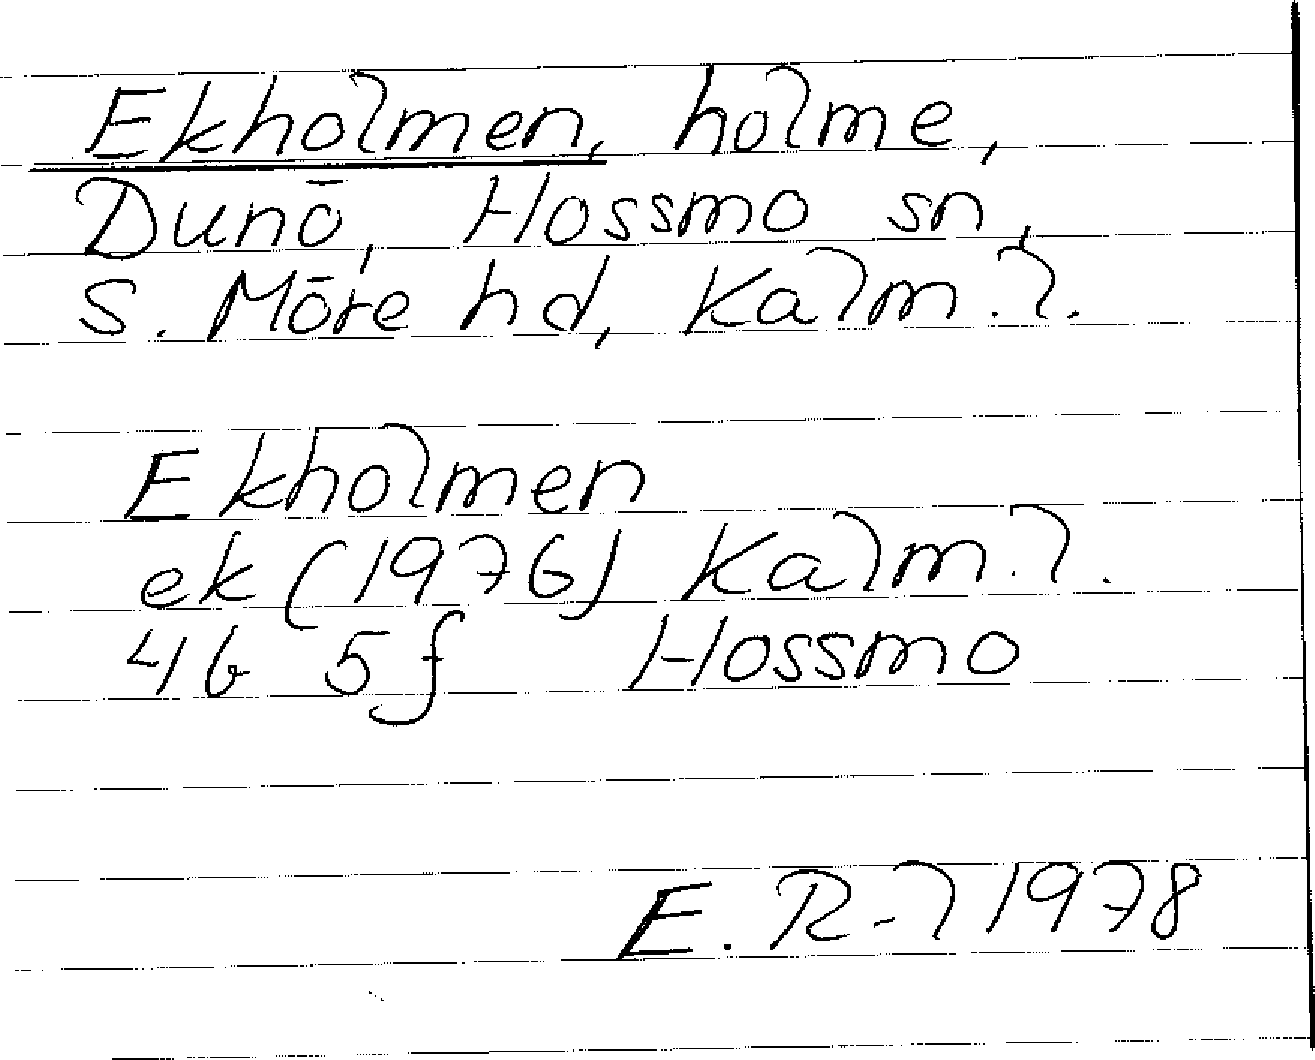 Ekholmen, holme,
Dunö, Hossmo sn,
S. Möre hd, Kalm. l.
Ekholmen
ek (1976) Kalm. l.
4G 5f Hossmo
E. R-l 1978